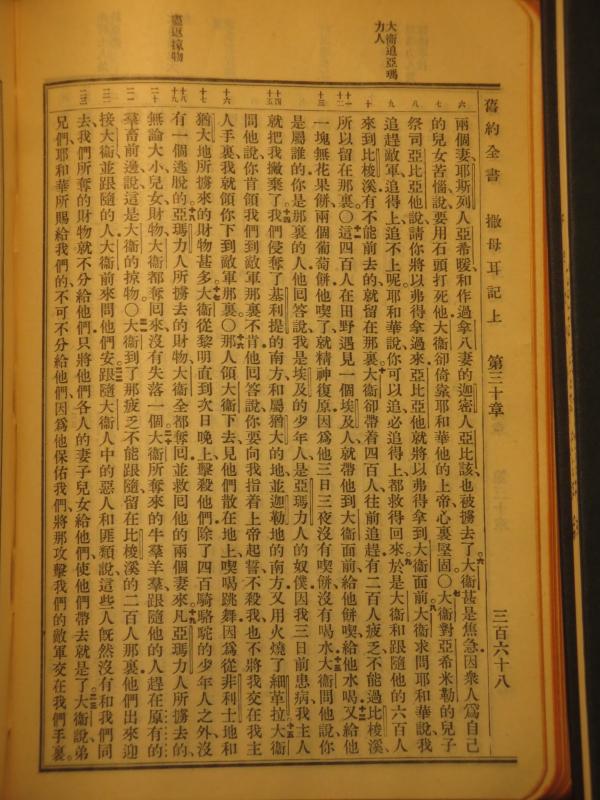 大衛追亞瑪
力人
盡返掠物
舊約全書 撒母耳記上 第三十章 三百六十八
六 兩個妻耶斯列人亞希暖和作過拿八妻的迦密人亞比該也被擄去了。六大衛甚是焦急因衆人爲自己
七 的兒女苦惱說要用石頭打死他大衛卻倚靠耶和華他的上帝心裏堅固〇七大衛對亞希米勒的兒子
八 祭司亞比亞他說請你將以弗得拿過來亞比亞他就將以弗得拿到大衛面前八大衛求問耶和華說我
九 追趕敵軍追得上追不上呢耶和華說你可以追必追得上都救得回來九於是大衛和跟隨他的六百人
十 來到比梭溪有不能前去的就留在那裏十大衛卻帶着四百人往前追趕有二百人疲乏不能過比梭溪
十一 十二 所以留在那裏〇十一這四百人在田野遇見一個埃及人就帶他到大衛面前給他餅喫給他水喝十二又給他
十三 一塊無花果餅兩個葡萄餅他喫了就精神復原因爲他三日三夜沒有喫餅沒有喝水十三大衛問他說你
是屬誰的你是那裏的人他回答說我是埃及的少年人是亞瑪力人的奴僕因我三日前患病我主人
十四 十五 就把我撇棄了十四我們侵奪了基利提的南方和屬猶大的地並迦勒地的南方又用火燒了細革拉十五大衛
問他說你肯領我們到敵軍那裏不肯他回答說你要向我指着上帝起誓不殺我也不將我交在我主
十六 人手裏我就領你下到敵軍那裏〇十六那人領大衛下去見他們散在地上喫喝跳舞因爲從非利士地和
十七 猶大地所擄來的財物甚多十七大衛從黎明直到次日晚上擊殺他們除了四百騎駱駝的少年人之外沒
十八 十九 有一個逃脫的十八亞瑪力人所擄去的財物大衛全都奪回並救回他的兩個妻來十九凡亞瑪力人所擄去的
二十 無論大小兒女財物大衛都奪回來沒有失落一個二十大衛所奪來的牛羣羊羣跟隨他的人趕在原有的
二一 羣畜前邊說這是大衛的掠物〇二一大衛到了那疲乏不能跟隨留在比梭溪的二百人那裏他們出來迎
二二 接大衛並跟隨的人大衛前來問他們安二二跟隨大衛人中的惡人和匪類說這些人旣然沒有和我們同
二三 去我們所奪的財物就不分給他們只將他們各人的妻子兒女給他們使他們帶去就是了二三大衛說弟
兄們耶和華所賜給我們的不可不分給他們因爲他保佑我們將那攻擊我們的敵軍交在我們手裏